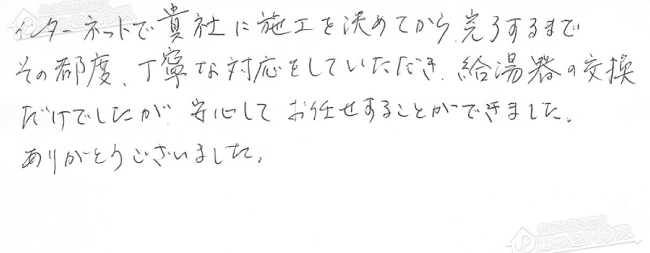 インターネットで貴社に施工を決めてから、完了するまで
その都度、丁寧な対応をしていただき、給湯器の交換
だけでしたが、安心して お任せすることができました。
ありがとうございました。